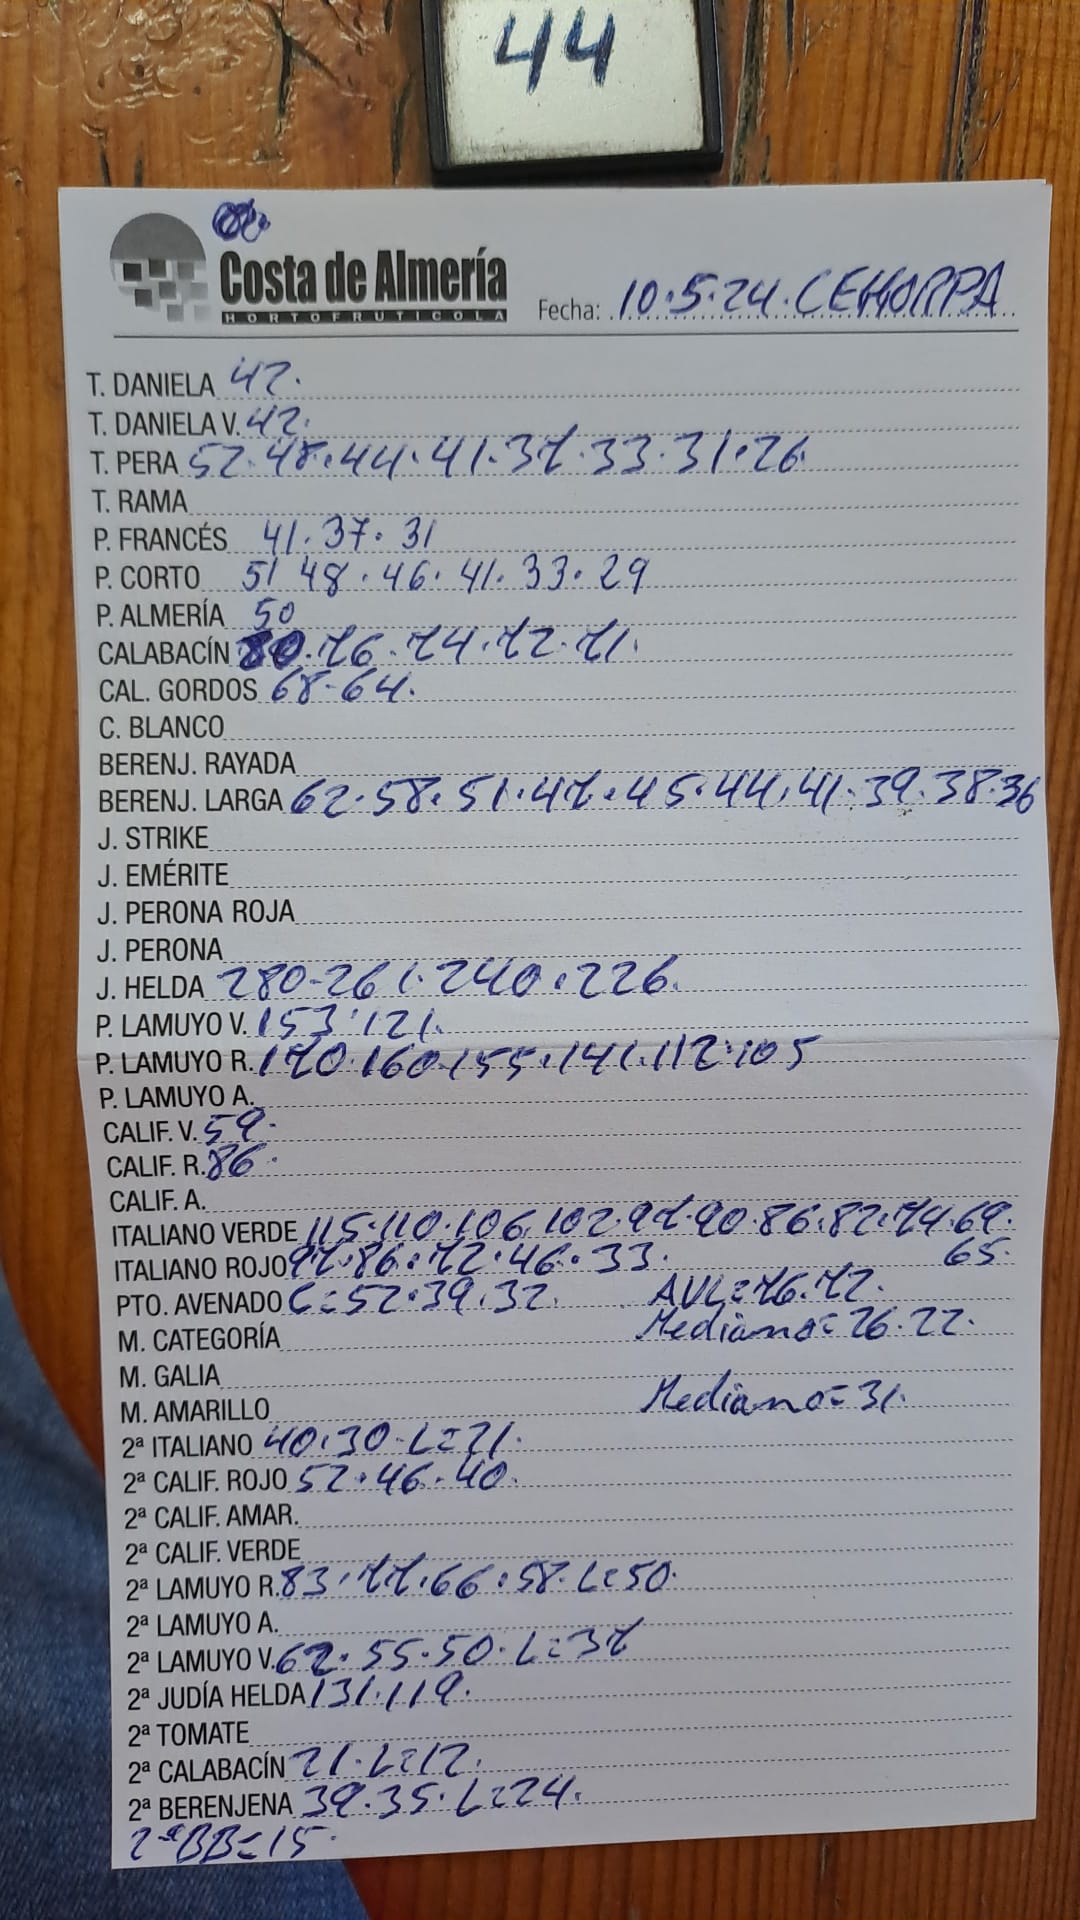 44
Costa de Almería
HORTOFRUTICOLA
Fecha: 10.5.24. CEHORPA
T. DANIELA 42.
T. DANIELA V. 42.
T. PERA 52.48.44.41.37.33.31.26.
T. RAMA
P. FRANCÉS 41.37.31
P. CORTO 51 48.46.41.33.29
P. ALMERÍA 50
CALABACÍN 80.76.74.72.71.
CAL. GORDOS 68-64.
C. BLANCO
BERENJ. RAYADA
BERENJ. LARGA 62.58.51.47.45.44.41.39.38.36
J. STRIKE
J. EMÉRITE
J. PERONA ROJA
J. PERONA
J. HELDA 280-261.240.226.
P. LAMUYO V. 153.121.
P. LAMUYO R. 170.160.155.141.112.105
P. LAMUYO A.
CALIF. V. 59.
CALIF. R. 86.
CALIF. A.
ITALIANO VERDE 115.110.106.102.97.90.86.82.74.69.
65.
ITALIANO ROJO 97.86.72.46.33.
PTO. AVENADO C=52.39.32. AVL=76.72.
Mediano=26.22.
M. CATEGORÍA
M. GALIA
M. AMARILLO Mediano=31.
2ª ITALIANO 40.30-L=21.
2ª CALIF. ROJO 52.46.40.
2ª CALIF. AMAR.
2ª CALIF. VERDE
2ª LAMUYO R. 83.77.66.58.L=50.
2ª LAMUYO A.
2ª LAMUYO V. 62.55.50.L=37
2ª JUDÍA HELDA 131.119.
2ª TOMATE
2ª CALABACÍN 21.L=12.
2ª BERENJENA 39.35.L=24.
2ªBB=15.